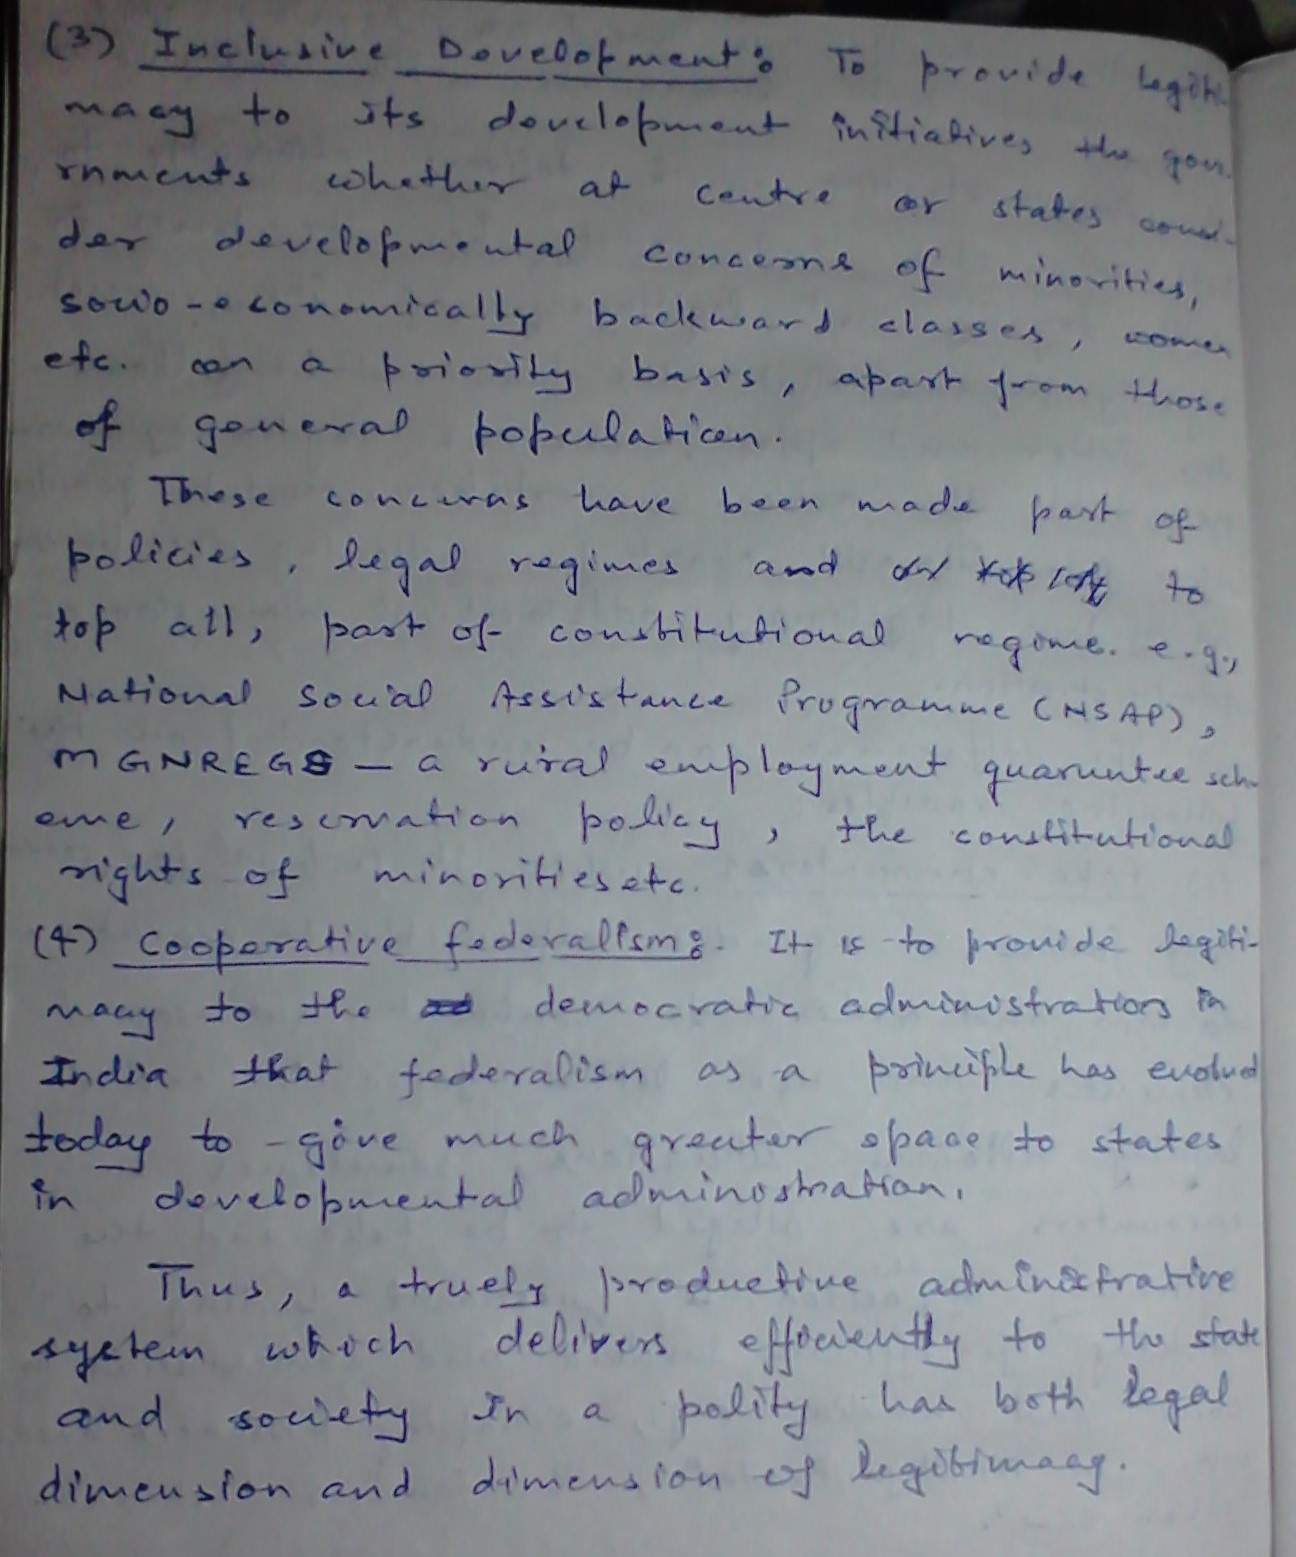 (3) Inclusive Development: To provide legiti-
macy to its development initiatives the gove-
rnments whether at centre or states consi-
der developmental concerns of minorities,
socio-economically backward classes, women
etc. on a priority basis, apart from those
of general population.
These concerns have been made part of
policies, legal regimes and to
top all, part of constitutional regime. e.g.,
National Social Assistance Programme (NSAP),
MGNREGS – a rural employment guaruntee sch-
eme, reservation policy, the constitutional
rights of minorities etc.
(4) Cooperative federalism:. It is to provide legiti-
macy to the democratic administration in
India that federalism as a principle has evolved
today to give much greater space to states
in developmental administration.
Thus, a truely productive administrative
system which delivers efficiently to the state
and society in a polity has both legal
dimension and dimension of legitimacy.